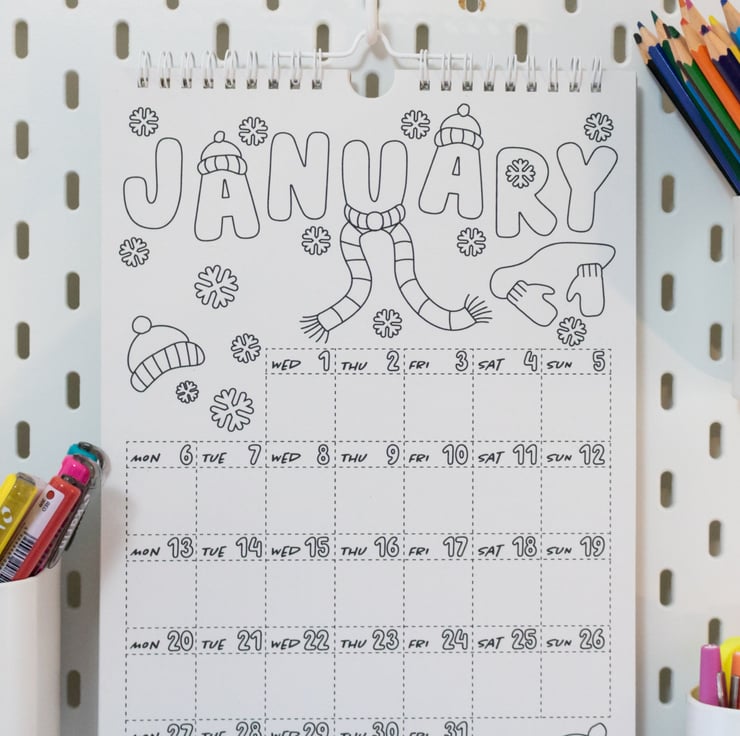 JANUARY
WED 1 THU 2 FRI 3 SAT 4 SUN 5
MON 6 TUE 7 WED 8 THU 9 FRI 10 SAT 11 SUN 12
MON 13 TUE 14 WED 15 THU 16 FRI 17 SAT 18 SUN 19
MON 20 TUE 21 WED 22 THU 23 FRI 24 SAT 25 SUN 26
MON 27 TUE 28 WED 29 THU 30 FRI 31